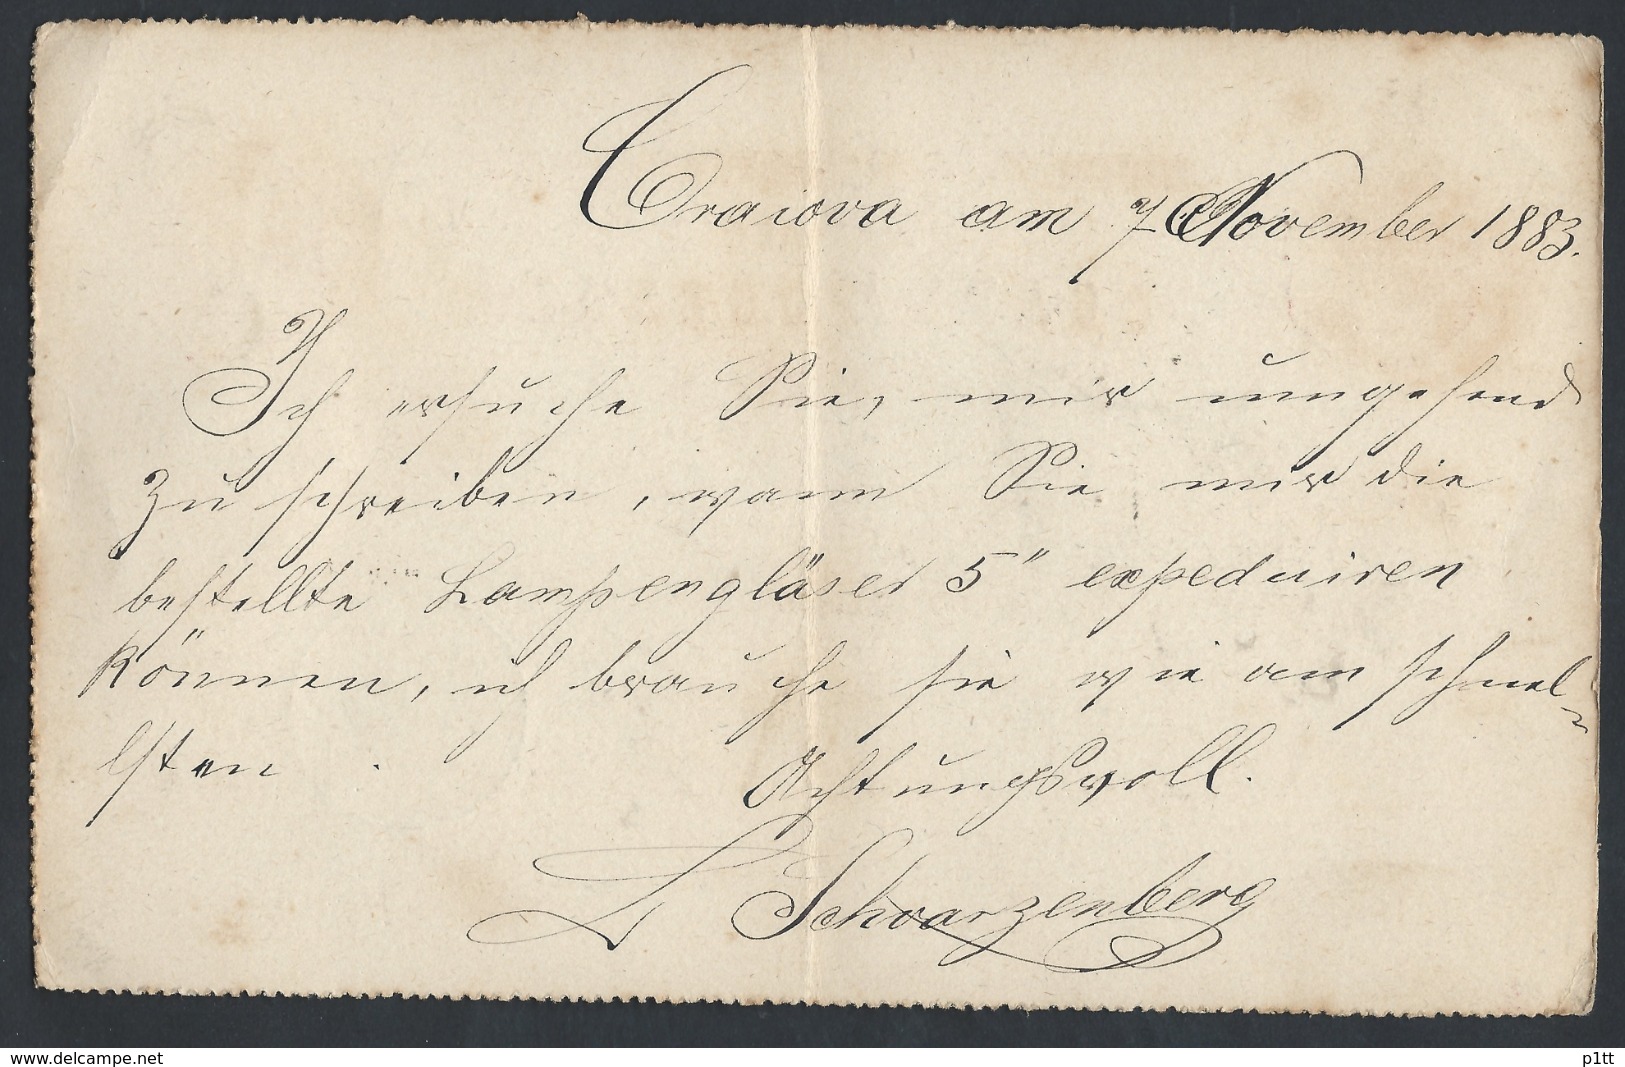 Craiova am 7 November 1883.
Ich ersuche Sie, mir umgehend
zu schreiben, wann Sie mir die
bestellte Lampengläser 5" expeduiren
können, ich brauche sie wie am schnel-
lsten.
Achtungsvoll.
L Schwarzenberg
www.delcampe.net
p1tt